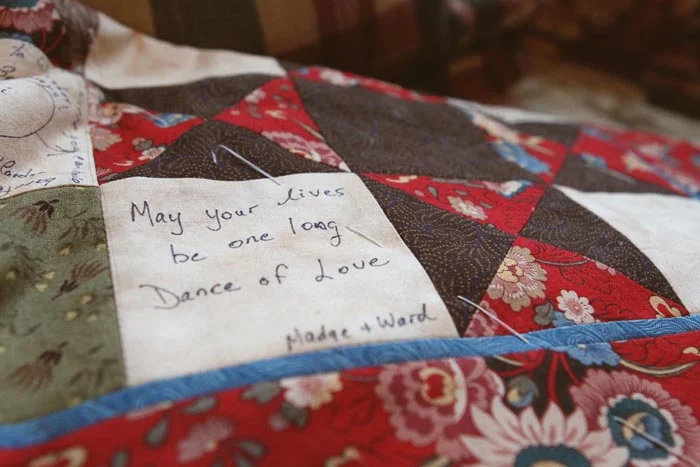 May your lives
be one long
Dance of Love
Madge + Ward